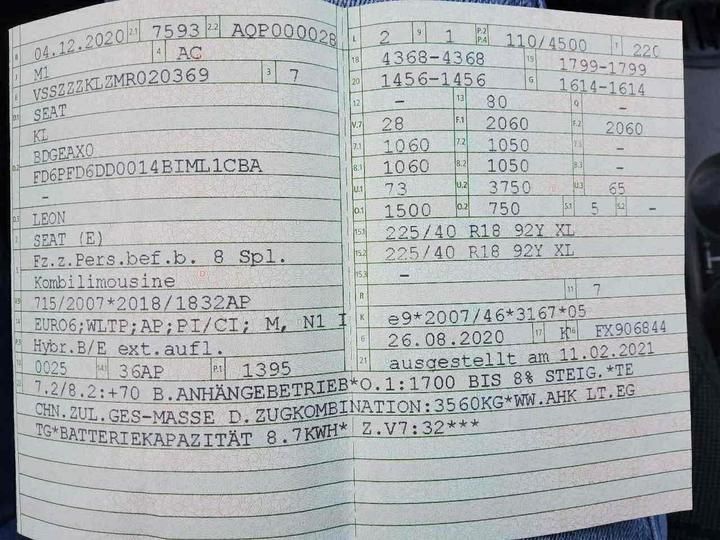 B 04.12.2020 2.1 7593 2.2 AQP000028
J M1 4 AC
E VSSZZZKLZMR020369 3 7
D.1 SEAT
KL
D.2 BDGEAX0
FD6PFD6DD0014BIML1CBA
-
D.3 LEON
2 SEAT (E)
5 Fz.z.Pers.bef.b. 8 Spl.
Kombilimousine
V.9 715/2007*2018/1832AP
14 EURO6;WLTP;AP;PI/CI; M, N1 I
P.3 Hybr.B/E ext.aufl.
10 0025 14.1 36AP P.1 1395
L 2 9 1 P.2 P.4 110/4500 T 220
18 4368-4368 19 1799-1799
20 1456-1456 G 1614-1614
12 - 13 80 Q -
V.7 28 F.1 2060 F.2 2060
7.1 1060 7.2 1050 7.3 -
8.1 1060 8.2 1050 8.3 -
U.1 73 U.2 3750 U.3 65
O.1 1500 O.2 750 S.1 5 S.2 -
15.1 225/40 R18 92Y XL
15.2 225/40 R18 92Y XL
15.3 -
R 11 7
K e9*2007/46*3167*05
6 26.08.2020 17 K 16 FX906844
21 ausgestellt am 11.02.2021
22 7.2/8.2:+70 B.ANHÄNGEBETRIEB*O.1:1700 BIS 8% STEIG.*TE
CHN.ZUL.GES-MASSE D.ZUGKOMBINATION:3560KG*WW.AHK LT.EG
TG*BATTERIEKAPAZITÄT 8.7KWH* Z.V7:32***